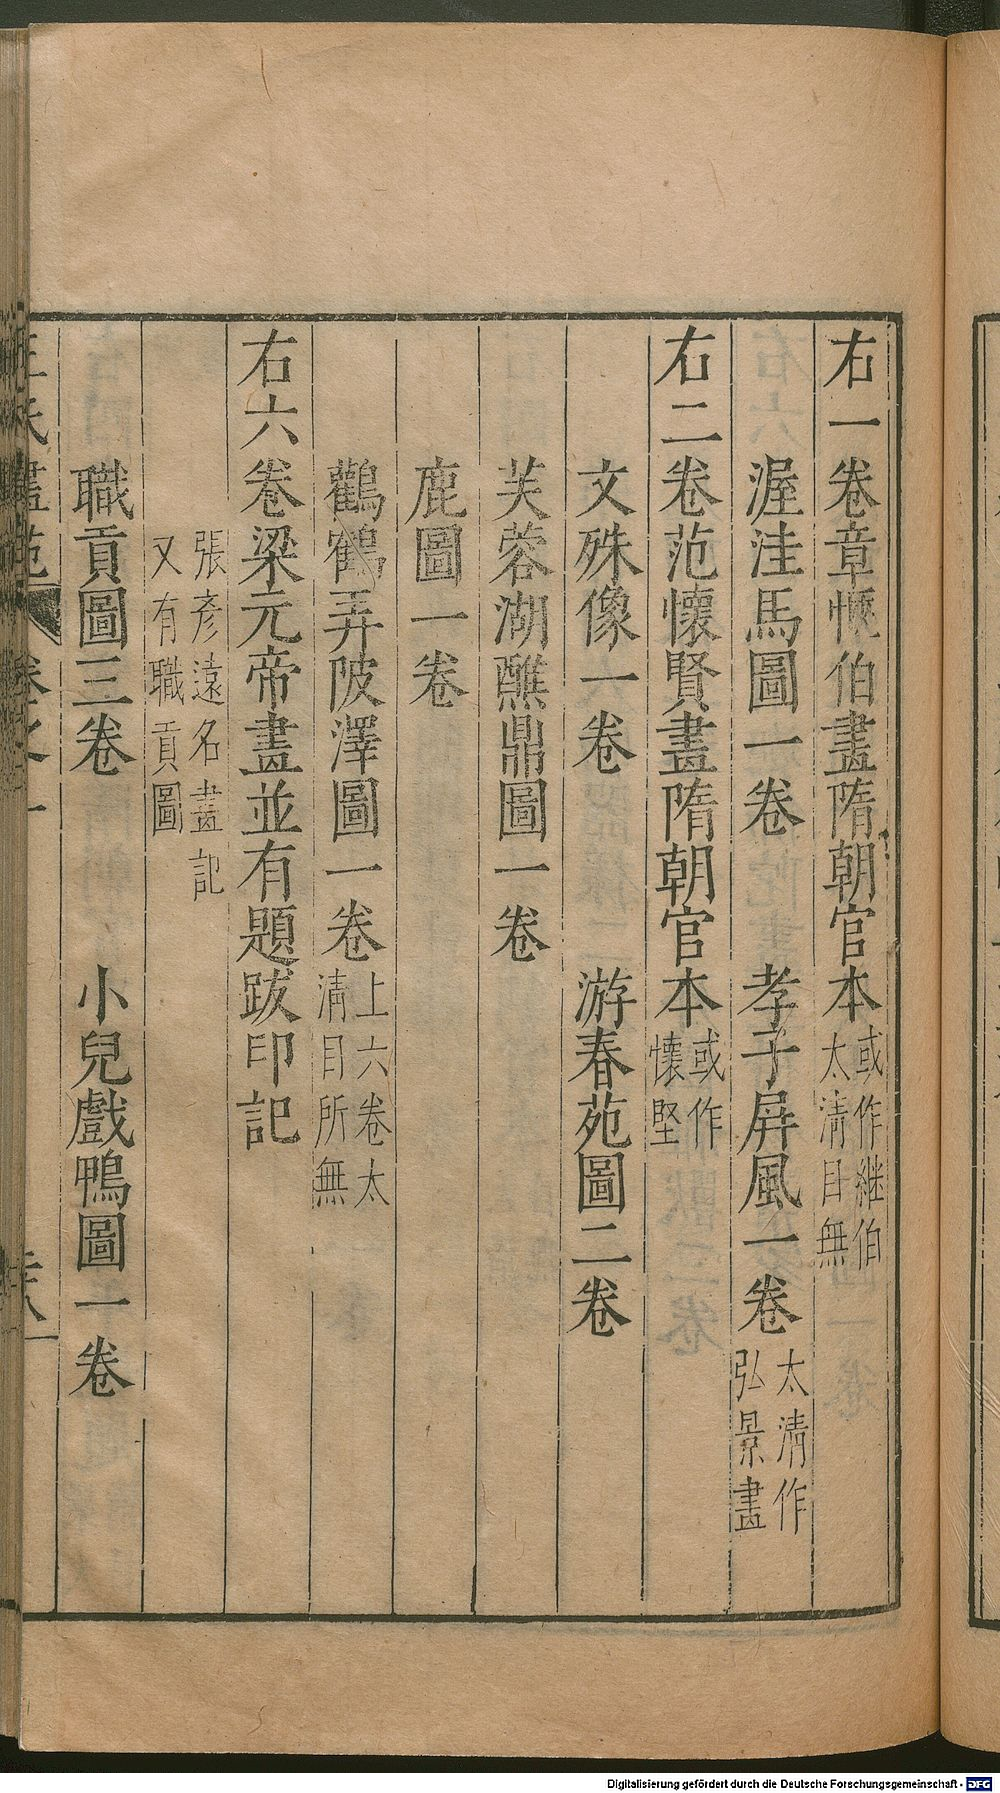 右一卷章㥦伯畫隋朝官本或作継伯太清目無
渥洼馬圖一卷　孝子屏風一卷太清作弘景畫
右二卷范懷賢畫隋朝官本或作懷堅
文殊像一卷　游春苑圖二卷
芙蓉湖醮鼎圖一卷
鹿圖一卷
鸛鶴弄陂澤圖一卷上六卷太清目所無
右六卷梁元帝畫並有題跋印記
張彦遠名畫記又有職貢圖
職貢圖三卷　小兒戲鴨圖一卷
王氏畫苑　卷之一
Digitalisierung gefördert durch die Deutsche Forschungsgemeinschaft - DFG